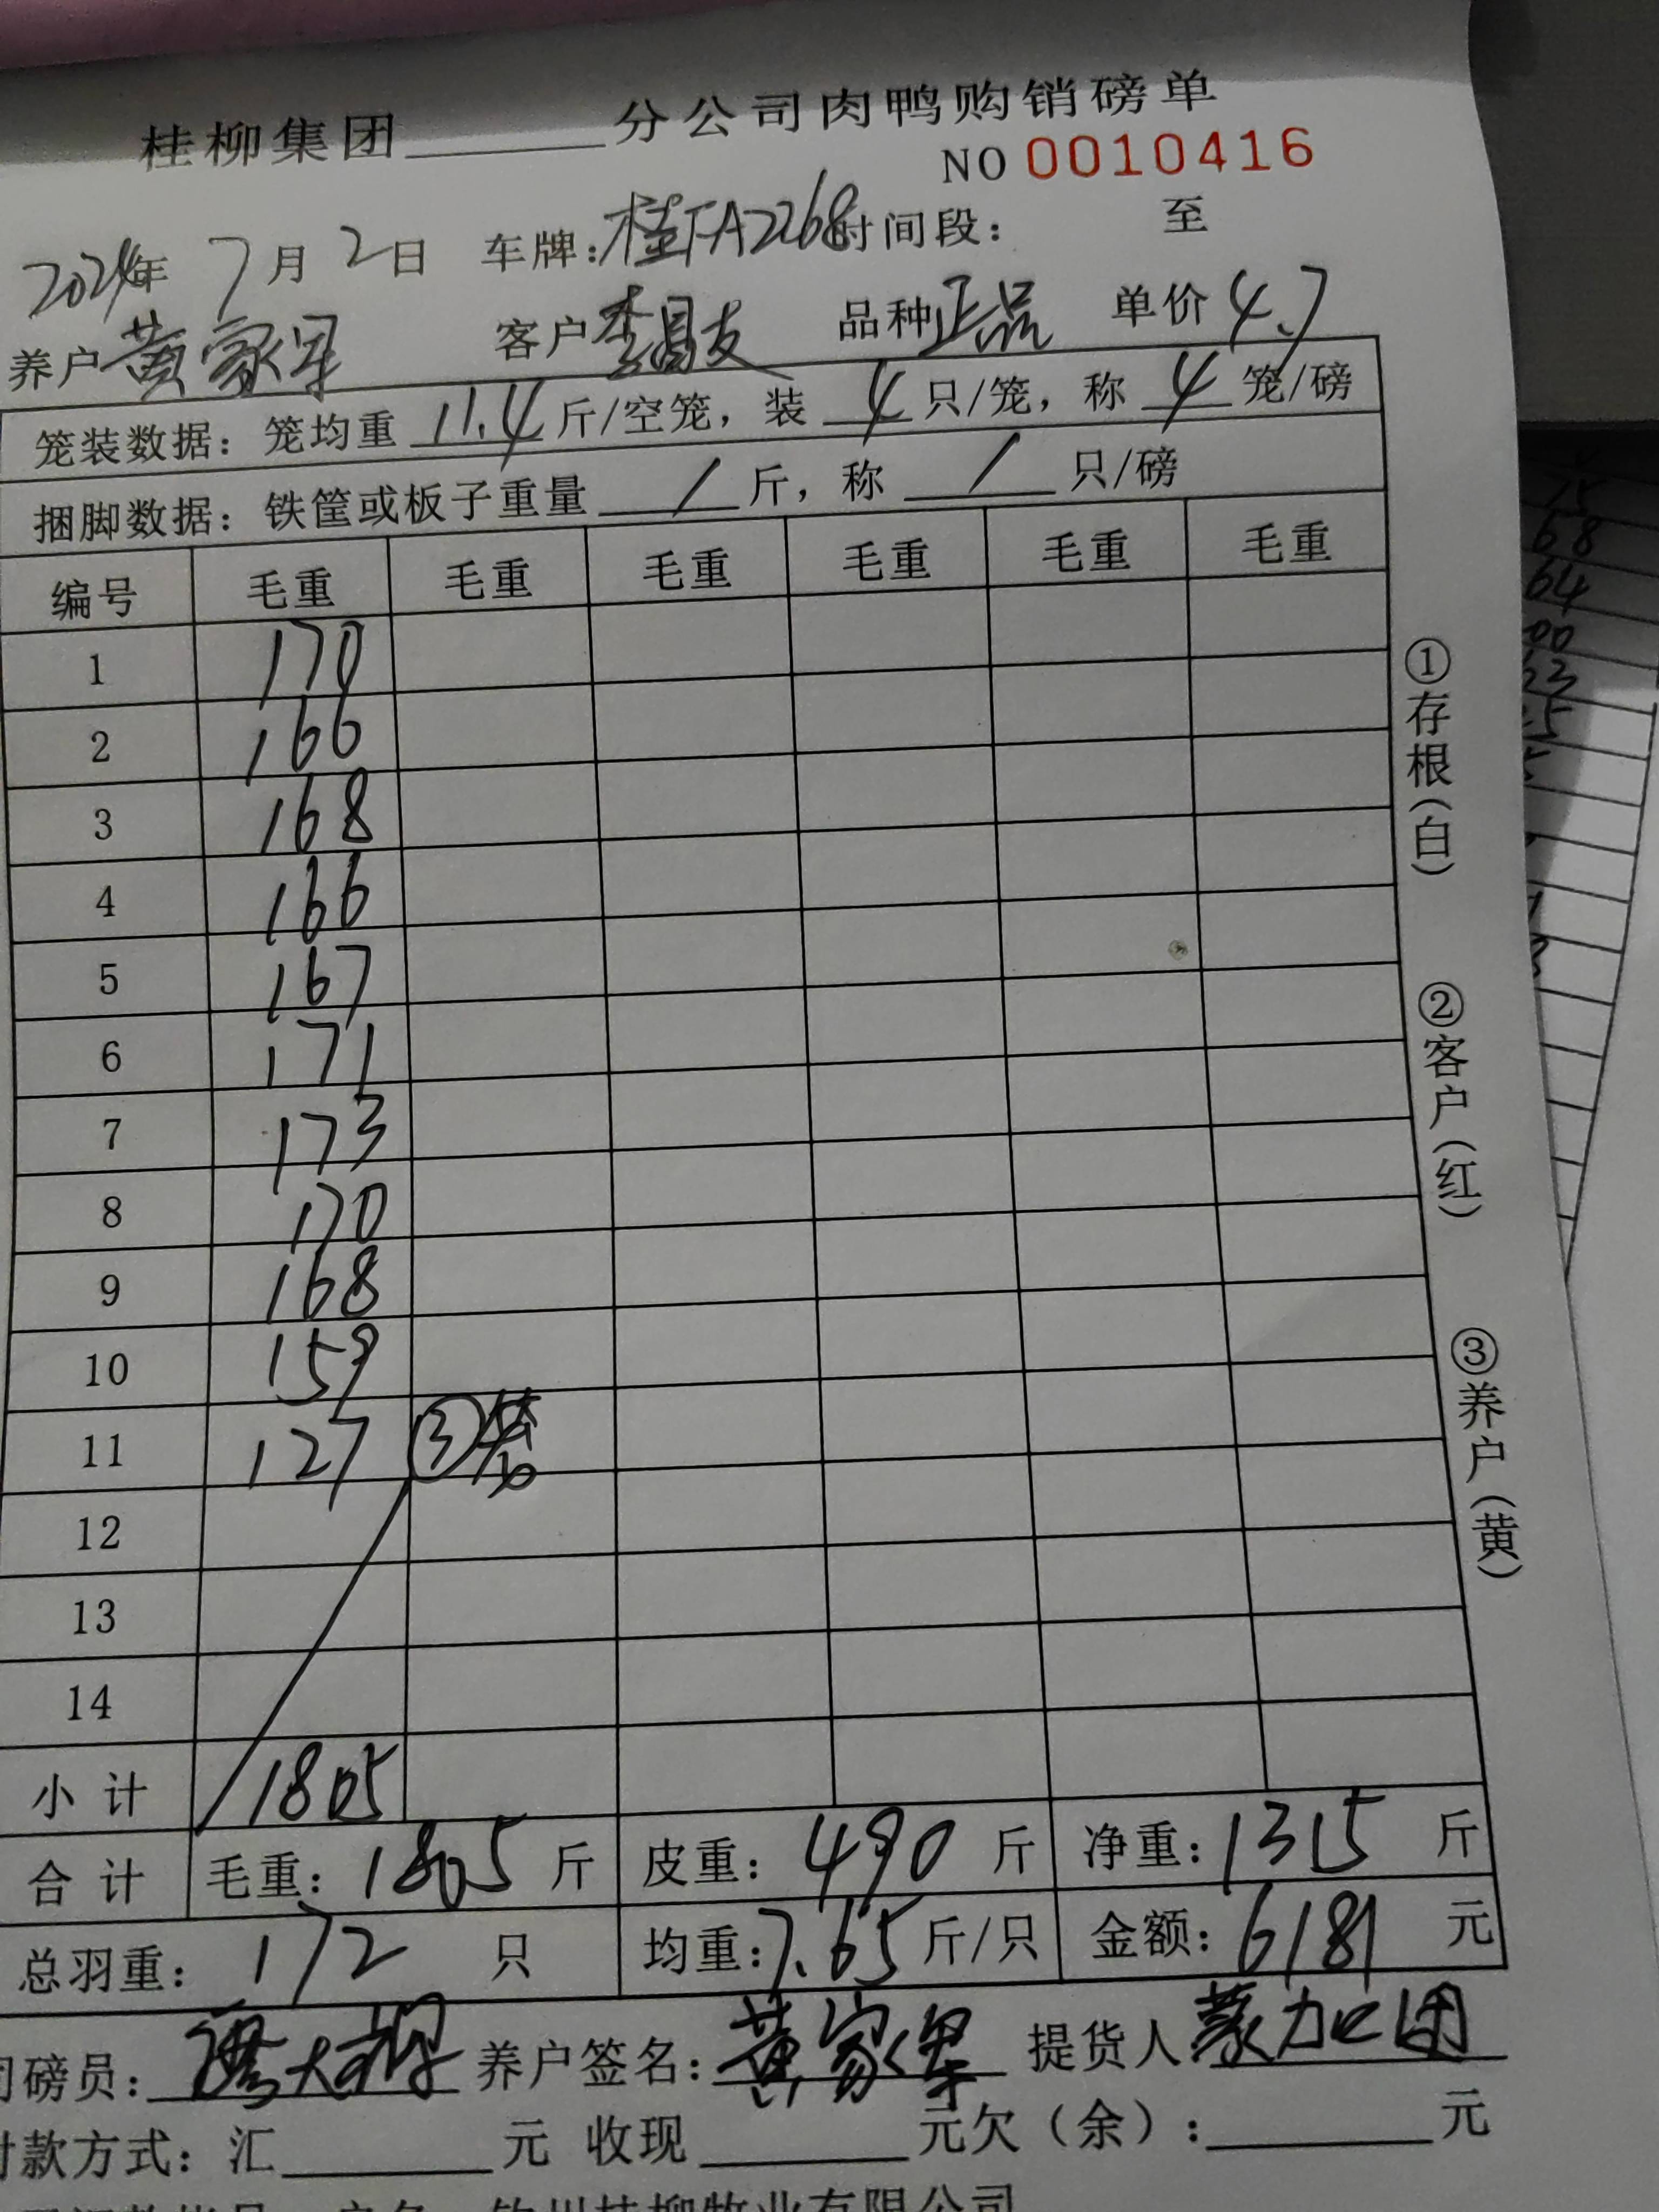 桂柳集团______分公司肉鸭购销磅单
NO 0010416
2024年 7月 2日 车牌:桂FA2268时间段: 至
养户 黄家军 客户 李昌友 品种 正品 单价 4.7
笼装数据: 笼均重 11.4 斤/空笼, 装 4 只/笼, 称 4 笼/磅
捆脚数据: 铁筐或板子重量 / 斤, 称 / 只/磅
编号 毛重 毛重 毛重 毛重 毛重 毛重
1 170
2 166
3 168
4 166
5 167
6 171
7 173
8 170
9 168
10 159
11 127 ③笼
12
13
14
小计 1805
合计 毛重: 1805 斤 皮重: 490 斤 净重: 1315 斤
总羽重: 172 只 均重: 7.65 斤/只 金额: 6181 元
磅员: 养户签名: 黄家军 提货人 蒙加团
付款方式: 汇______元 收现______元欠(余):______元
①存根(白)
②客户(红)
③养户(黄)